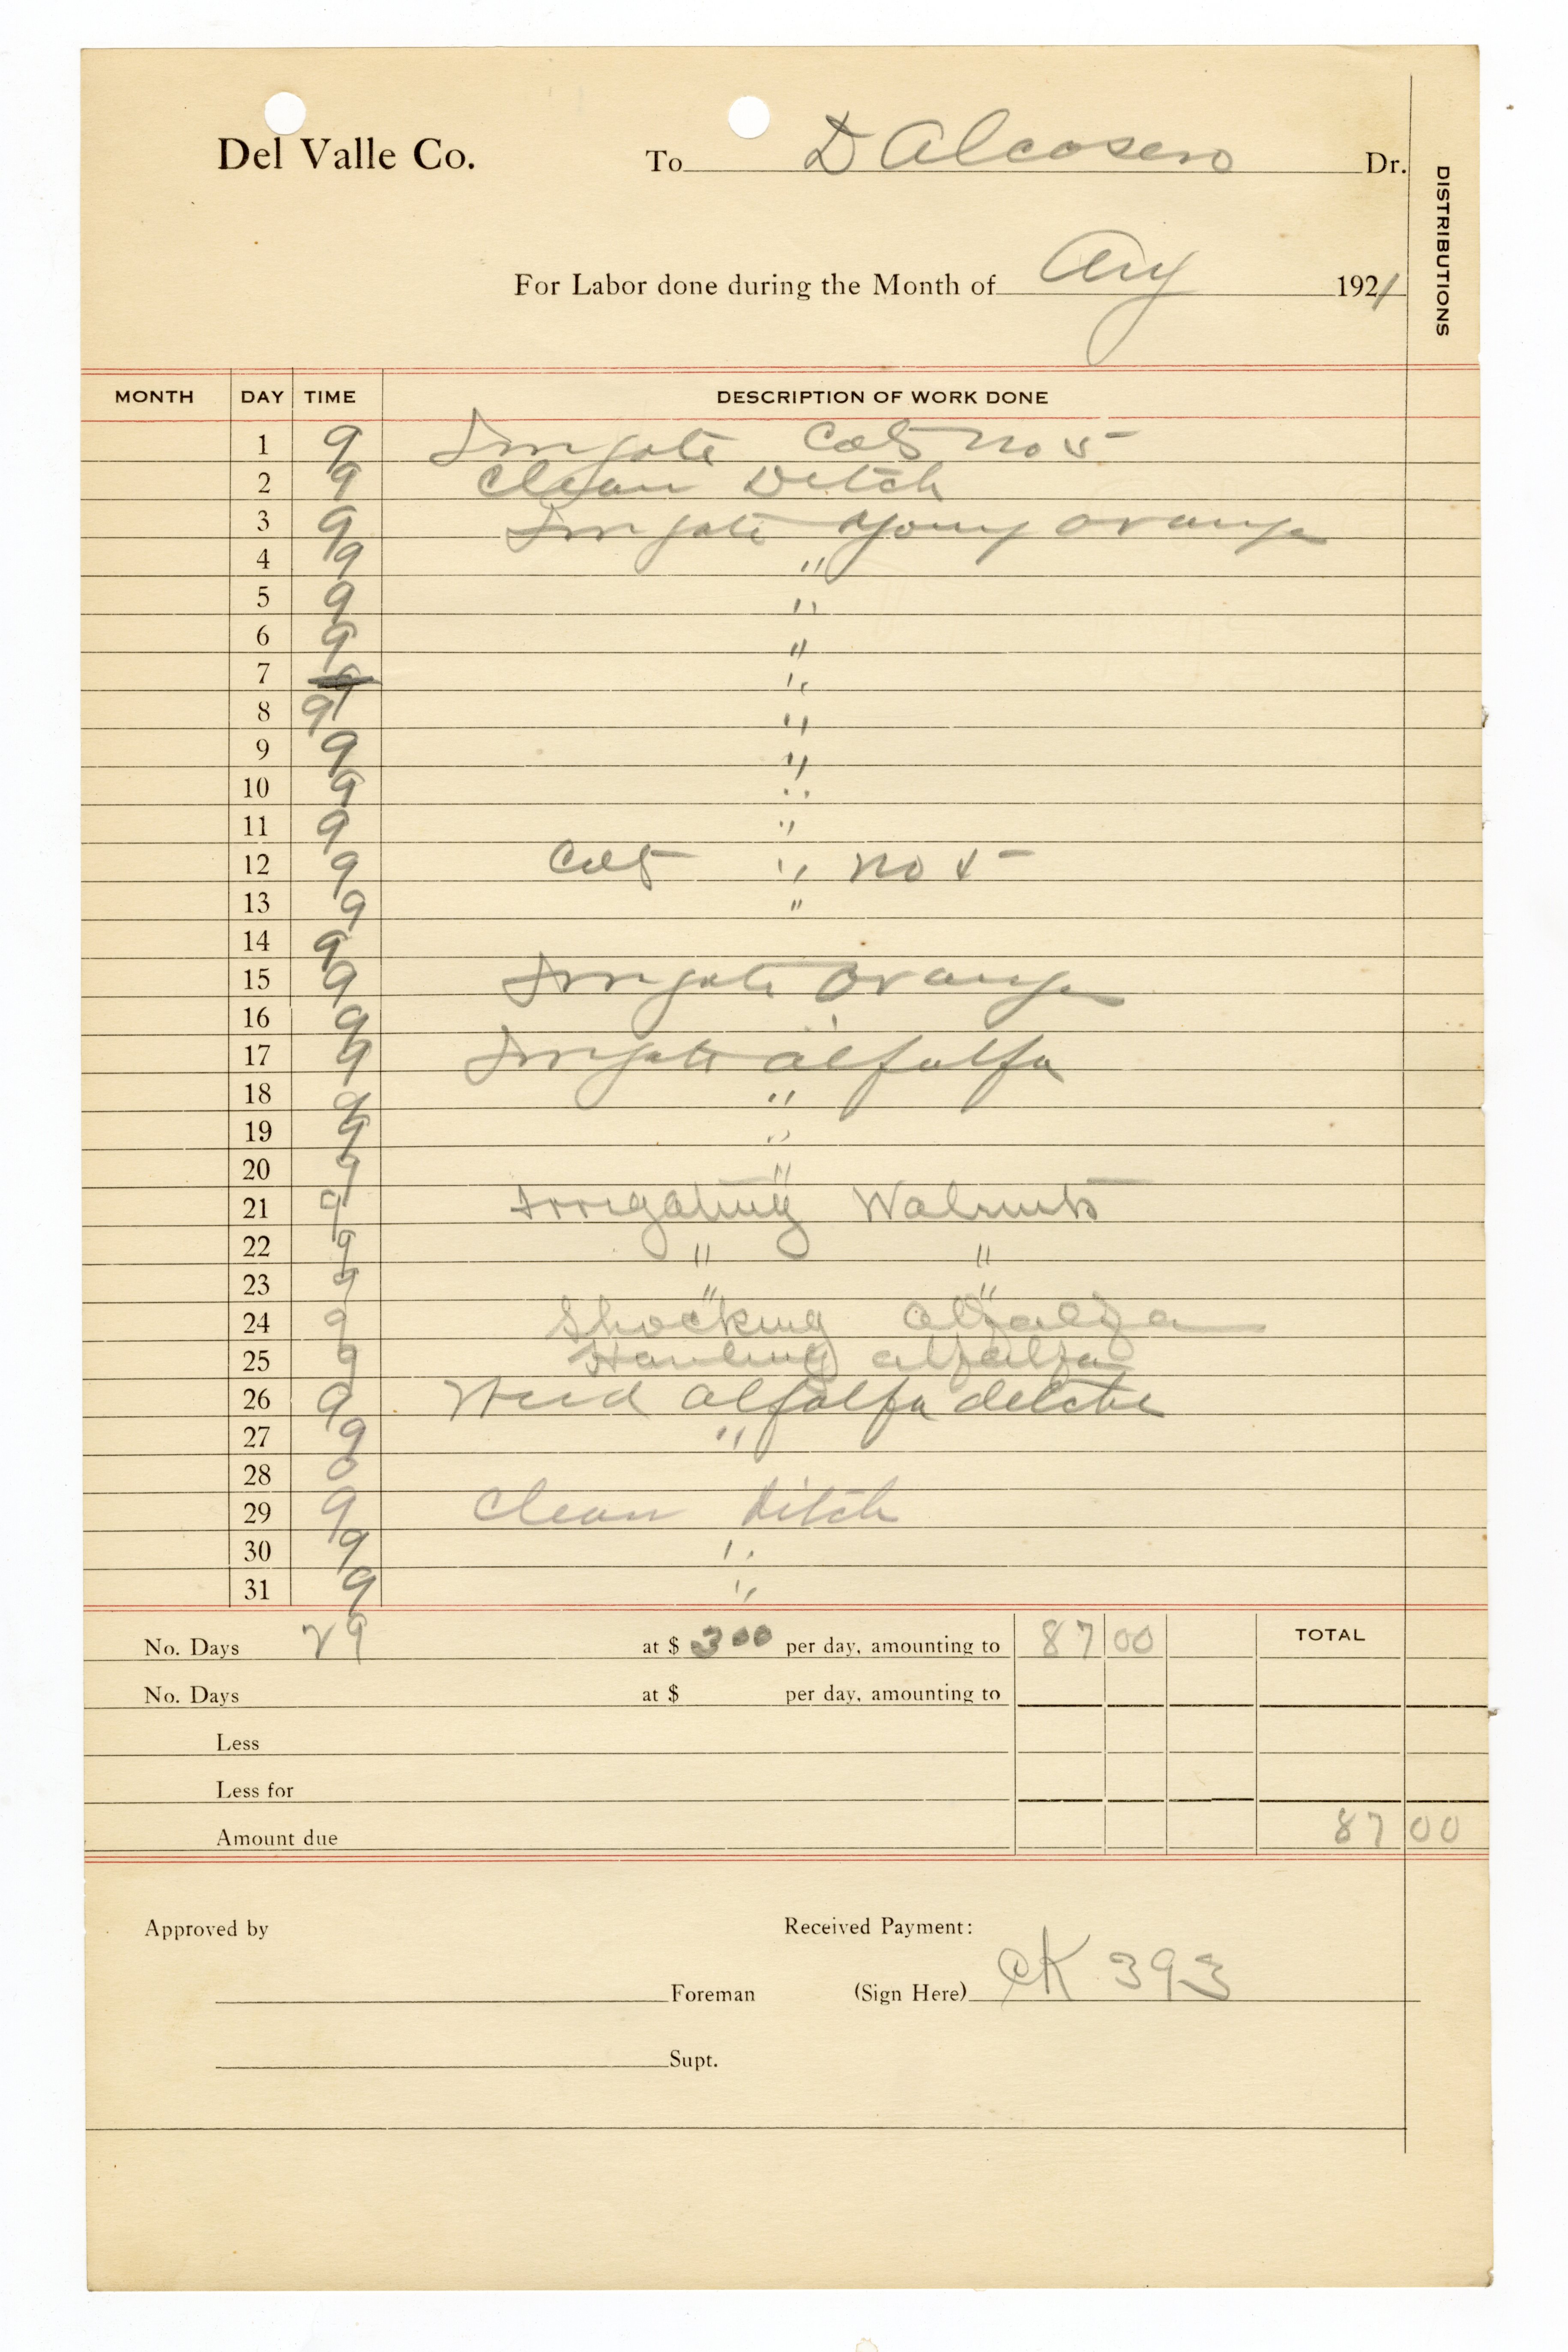 Del Valle Co. To D Alcosero Dr.
DISTRIBUTIONS
For Labor done during the Month of Aug 1921
MONTH DAY TIME DESCRIPTION OF WORK DONE
1 9 Irrigate No 5
2 9 Clean Ditch
3 9 Irrigate Young orange
4 9 "
5 9 "
6 9 "
7 9 "
8 9 "
9 9 "
10 9 "
11 9 "
12 9 " No 5
13 9 "
14 9
15 9 Irrigate orange
16 9
17 9 Irrigate alfalfa
18 9 "
19 9 "
20 9 "
21 9 Irrigating Walnuts
22 9 " "
23 9 " "
24 9 Shocking alfalfa
25 9 Hauling alfalfa
26 9 alfalfa
27 9 "
28 0
29 9 Clean Ditch
30 9 "
31 9 "
No. Days 29 at $ 3 00 per day, amounting to 87 00 TOTAL
No. Days at $ per day, amounting to
Less
Less for
Amount due 87 00
Approved by Received Payment:
Foreman (Sign Here) CK 393
Supt.